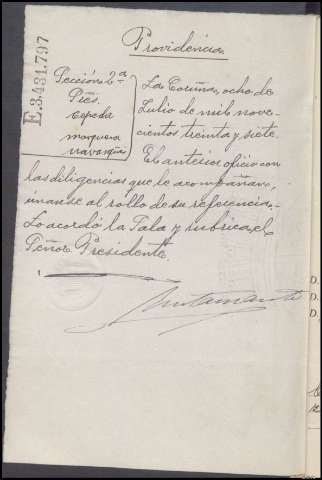 Providencia.
E.3.431.797
Sección 2ª
Srés.
Cepeda
mosquera
navarza
La Coruña, ocho de
Julio de mil nove-
cientos treinta y siete.
El anterior oficio con
las diligencias que le acompañan,
únanse al rollo de su referencia.-
Lo acordó la Sala y rubrica el
Señor Presidente.
D.
D.
D.